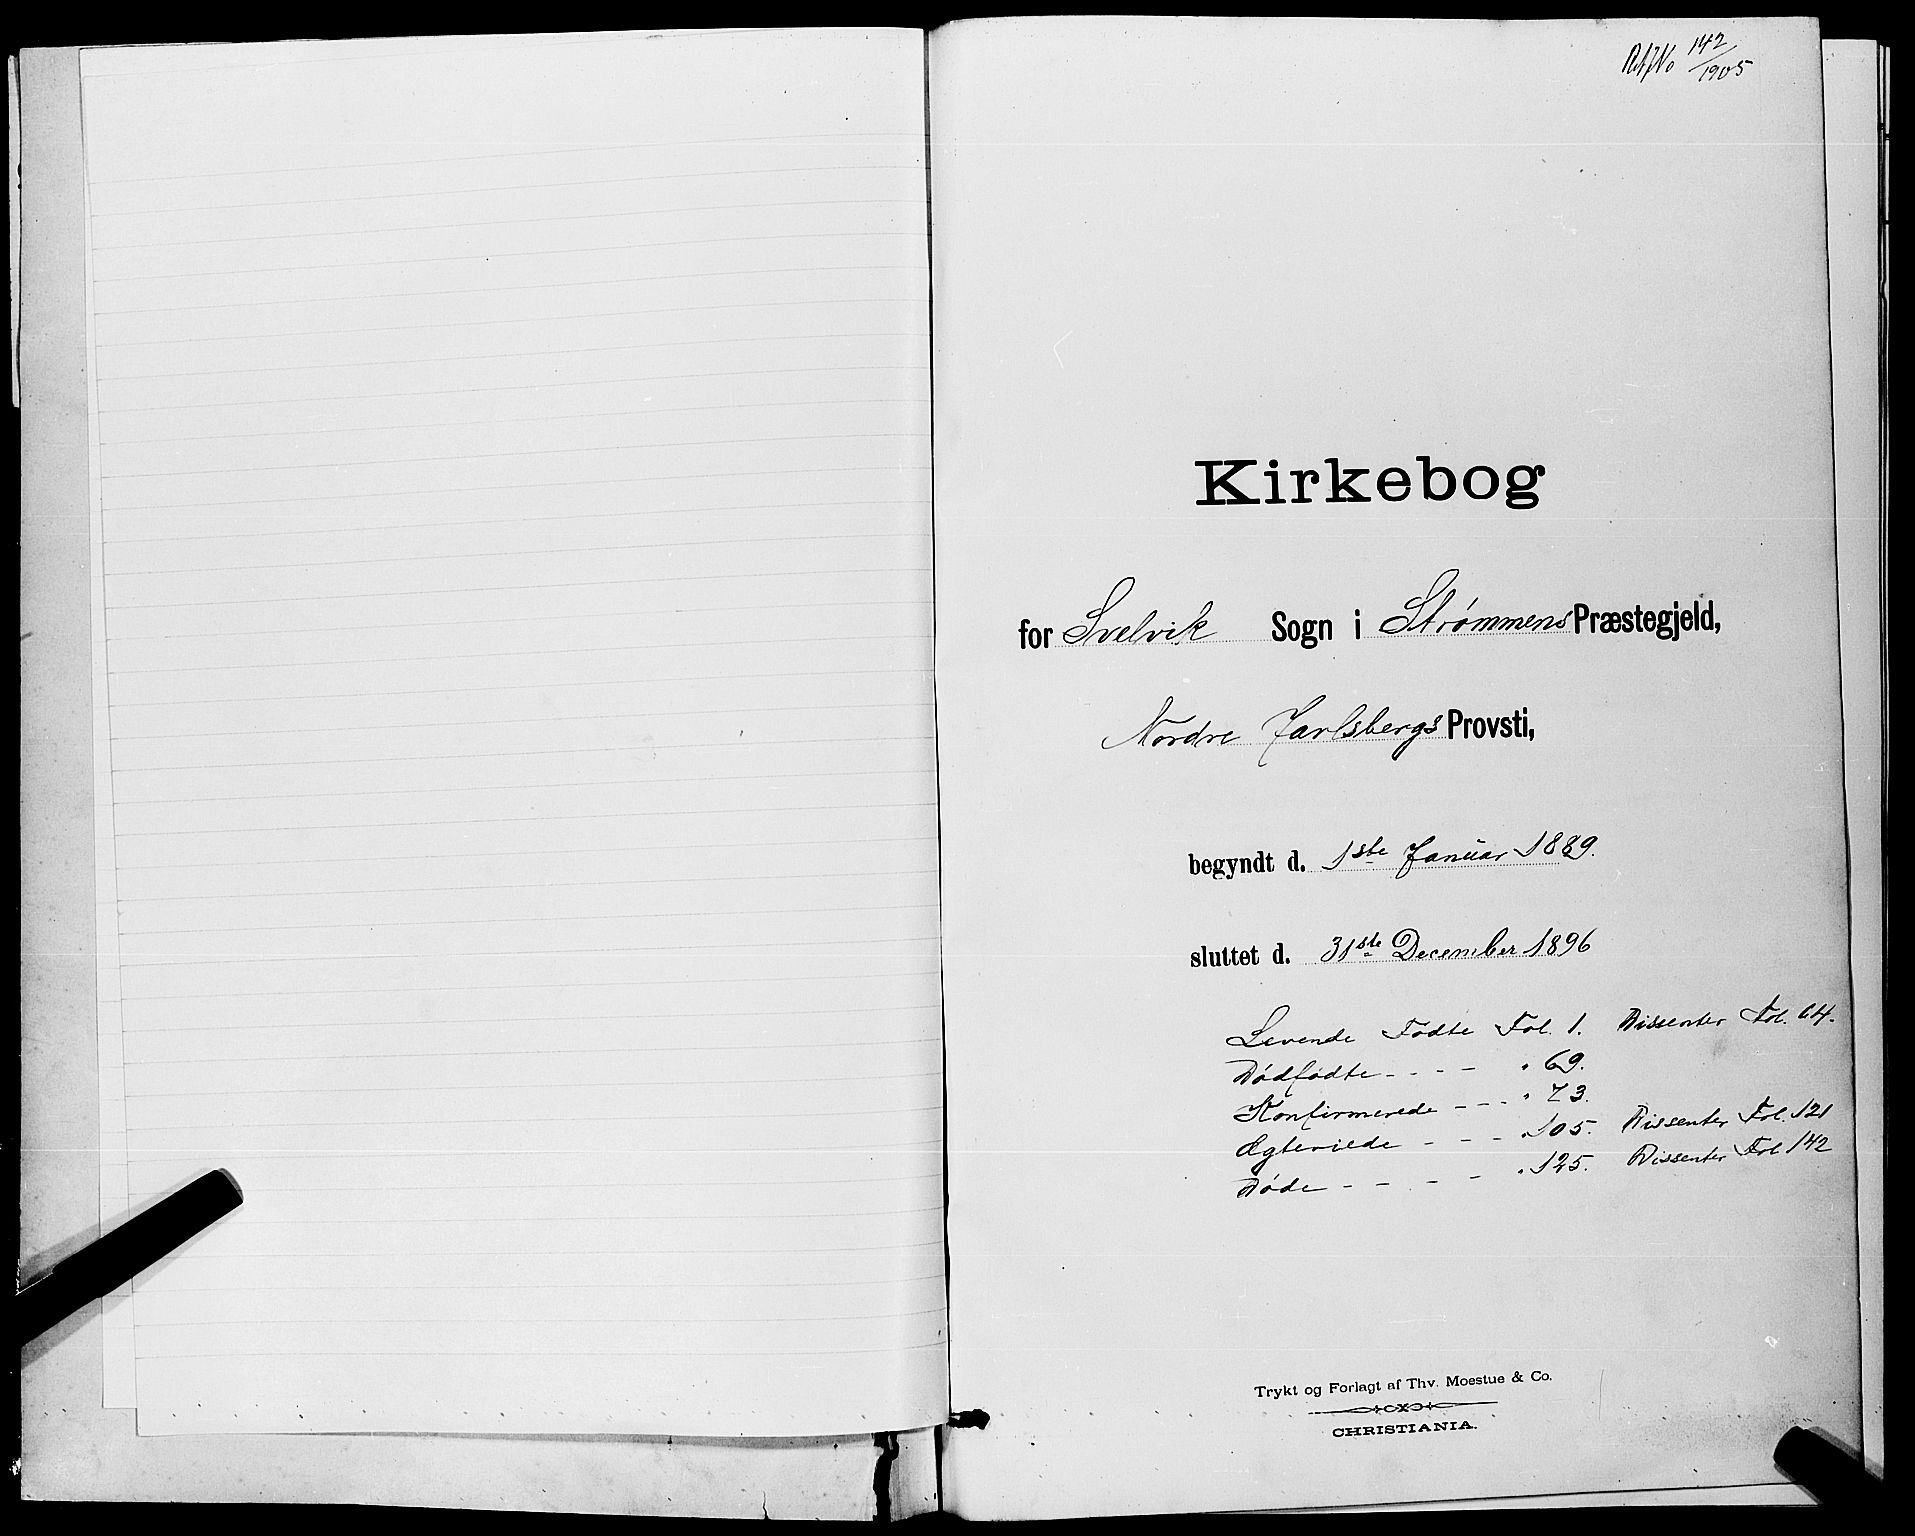 142/1905
Kirkebog
for Svelvik Sogn i Strømmens Præstegjeld,
Nordre Jarlsbergs Provsti,
begyndt d. 1ste Januar 1889.
sluttet d. 31ste December 1896
Levende Fødte Fol. 1. Dissenter Fol. 64.
Dødfødte - - - - " 69.
Konfirmerede - - - " 73.
Ægteviede - - - " 105. Dissenter Fol. 121
Døde - - - - " 125. Dissenter Fol 142
Trykt og Forlagt af Thv. Moestue & Co.
CHRISTIANIA.